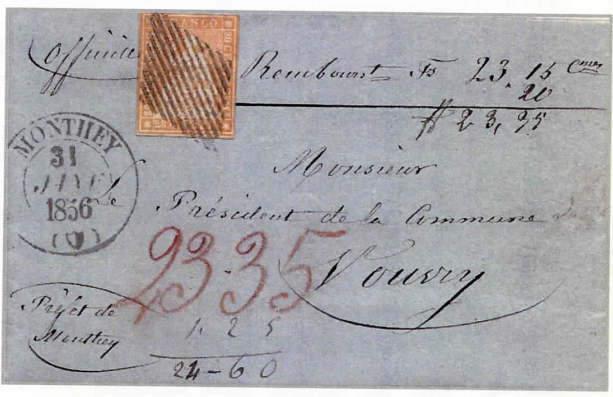 Officielle
FRANCO
Remboursť Fs 23. 15 Cmes
20
# 23, 35
MONTHEY
31
JANV
1856
(V)
Monsieur
Le Président de la Commune de
Vouvry
23-35
Préfet de
Monthey
1. 25
24-60